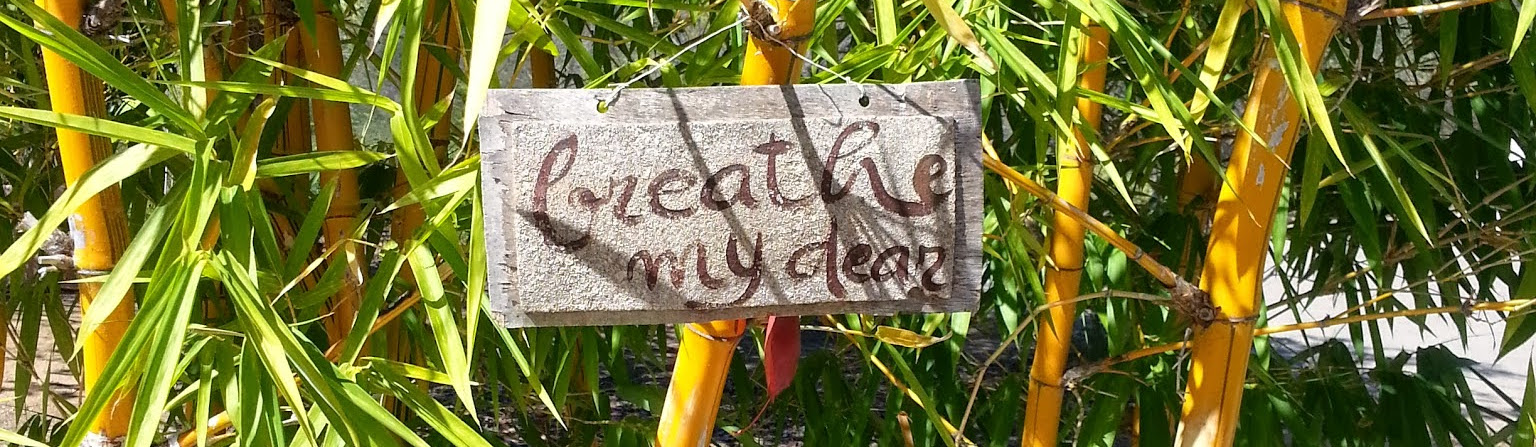 breathe
my dear